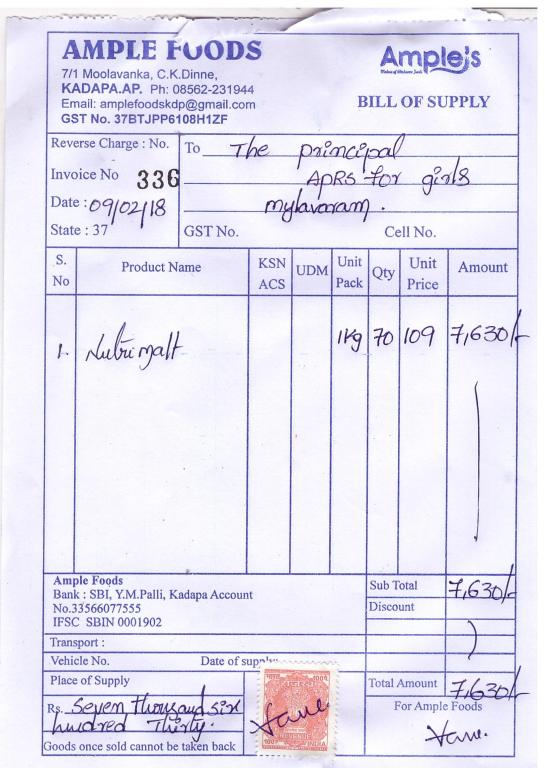 AMPLE FOODS
7/1 Moolavanka, C.K.Dinne,
KADAPA.AP. Ph: 08562-231944
Email: amplefoodskdp@gmail.com
GST No. 37BTJPP6108H1ZF
Ample's
BILL OF SUPPLY
Reverse Charge : No.
Invoice No 336
Date : 09/02/18
State : 37
To The principal
APRS for girls
mylavaram.
GST No. Cell No.
S. No Product Name KSN ACS UDM Unit Pack Qty Unit Price Amount
1. Nutrimalt 1kg 70 109 7,630/-
Ample Foods
Bank : SBI, Y.M.Palli, Kadapa Account
No.33566077555
IFSC SBIN 0001902
Sub Total 7,630/-
Discount
Transport :
Vehicle No. Date of supply
Place of Supply
Total Amount 7,630/-
Rs. Seven thousand six
hundred Thirty.
Goods once sold cannot be taken back
REVENUE
INDIA
For Ample Foods